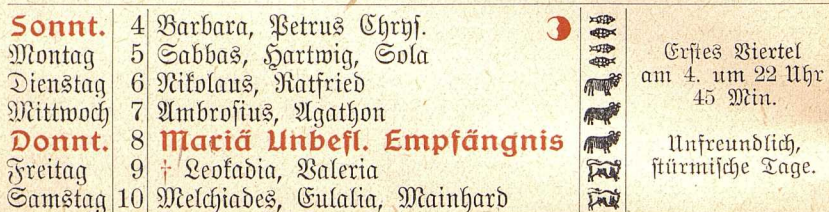 Sonnt. 4 Barbara, Petrus Chrys.
Montag 5 Sabbas, Hartwig, Sola
Dienstag 6 Nikolaus, Ratfried
Mittwoch 7 Ambrosius, Agathon
Donnt. 8 Mariä Unbefl. Empfängnis
Freitag 9 † Leokadia, Valeria
Samstag 10 Melchiades, Eulalia, Mainhard
Erstes Viertel
am 4. um 22 Uhr
45 Min.
Unfreundlich,
stürmische Tage.